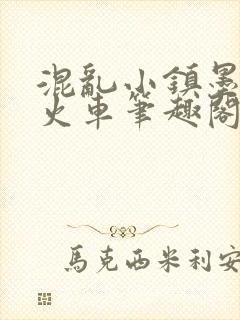 混亂小鎮墨
火車筆趣閣
馬克西米利安